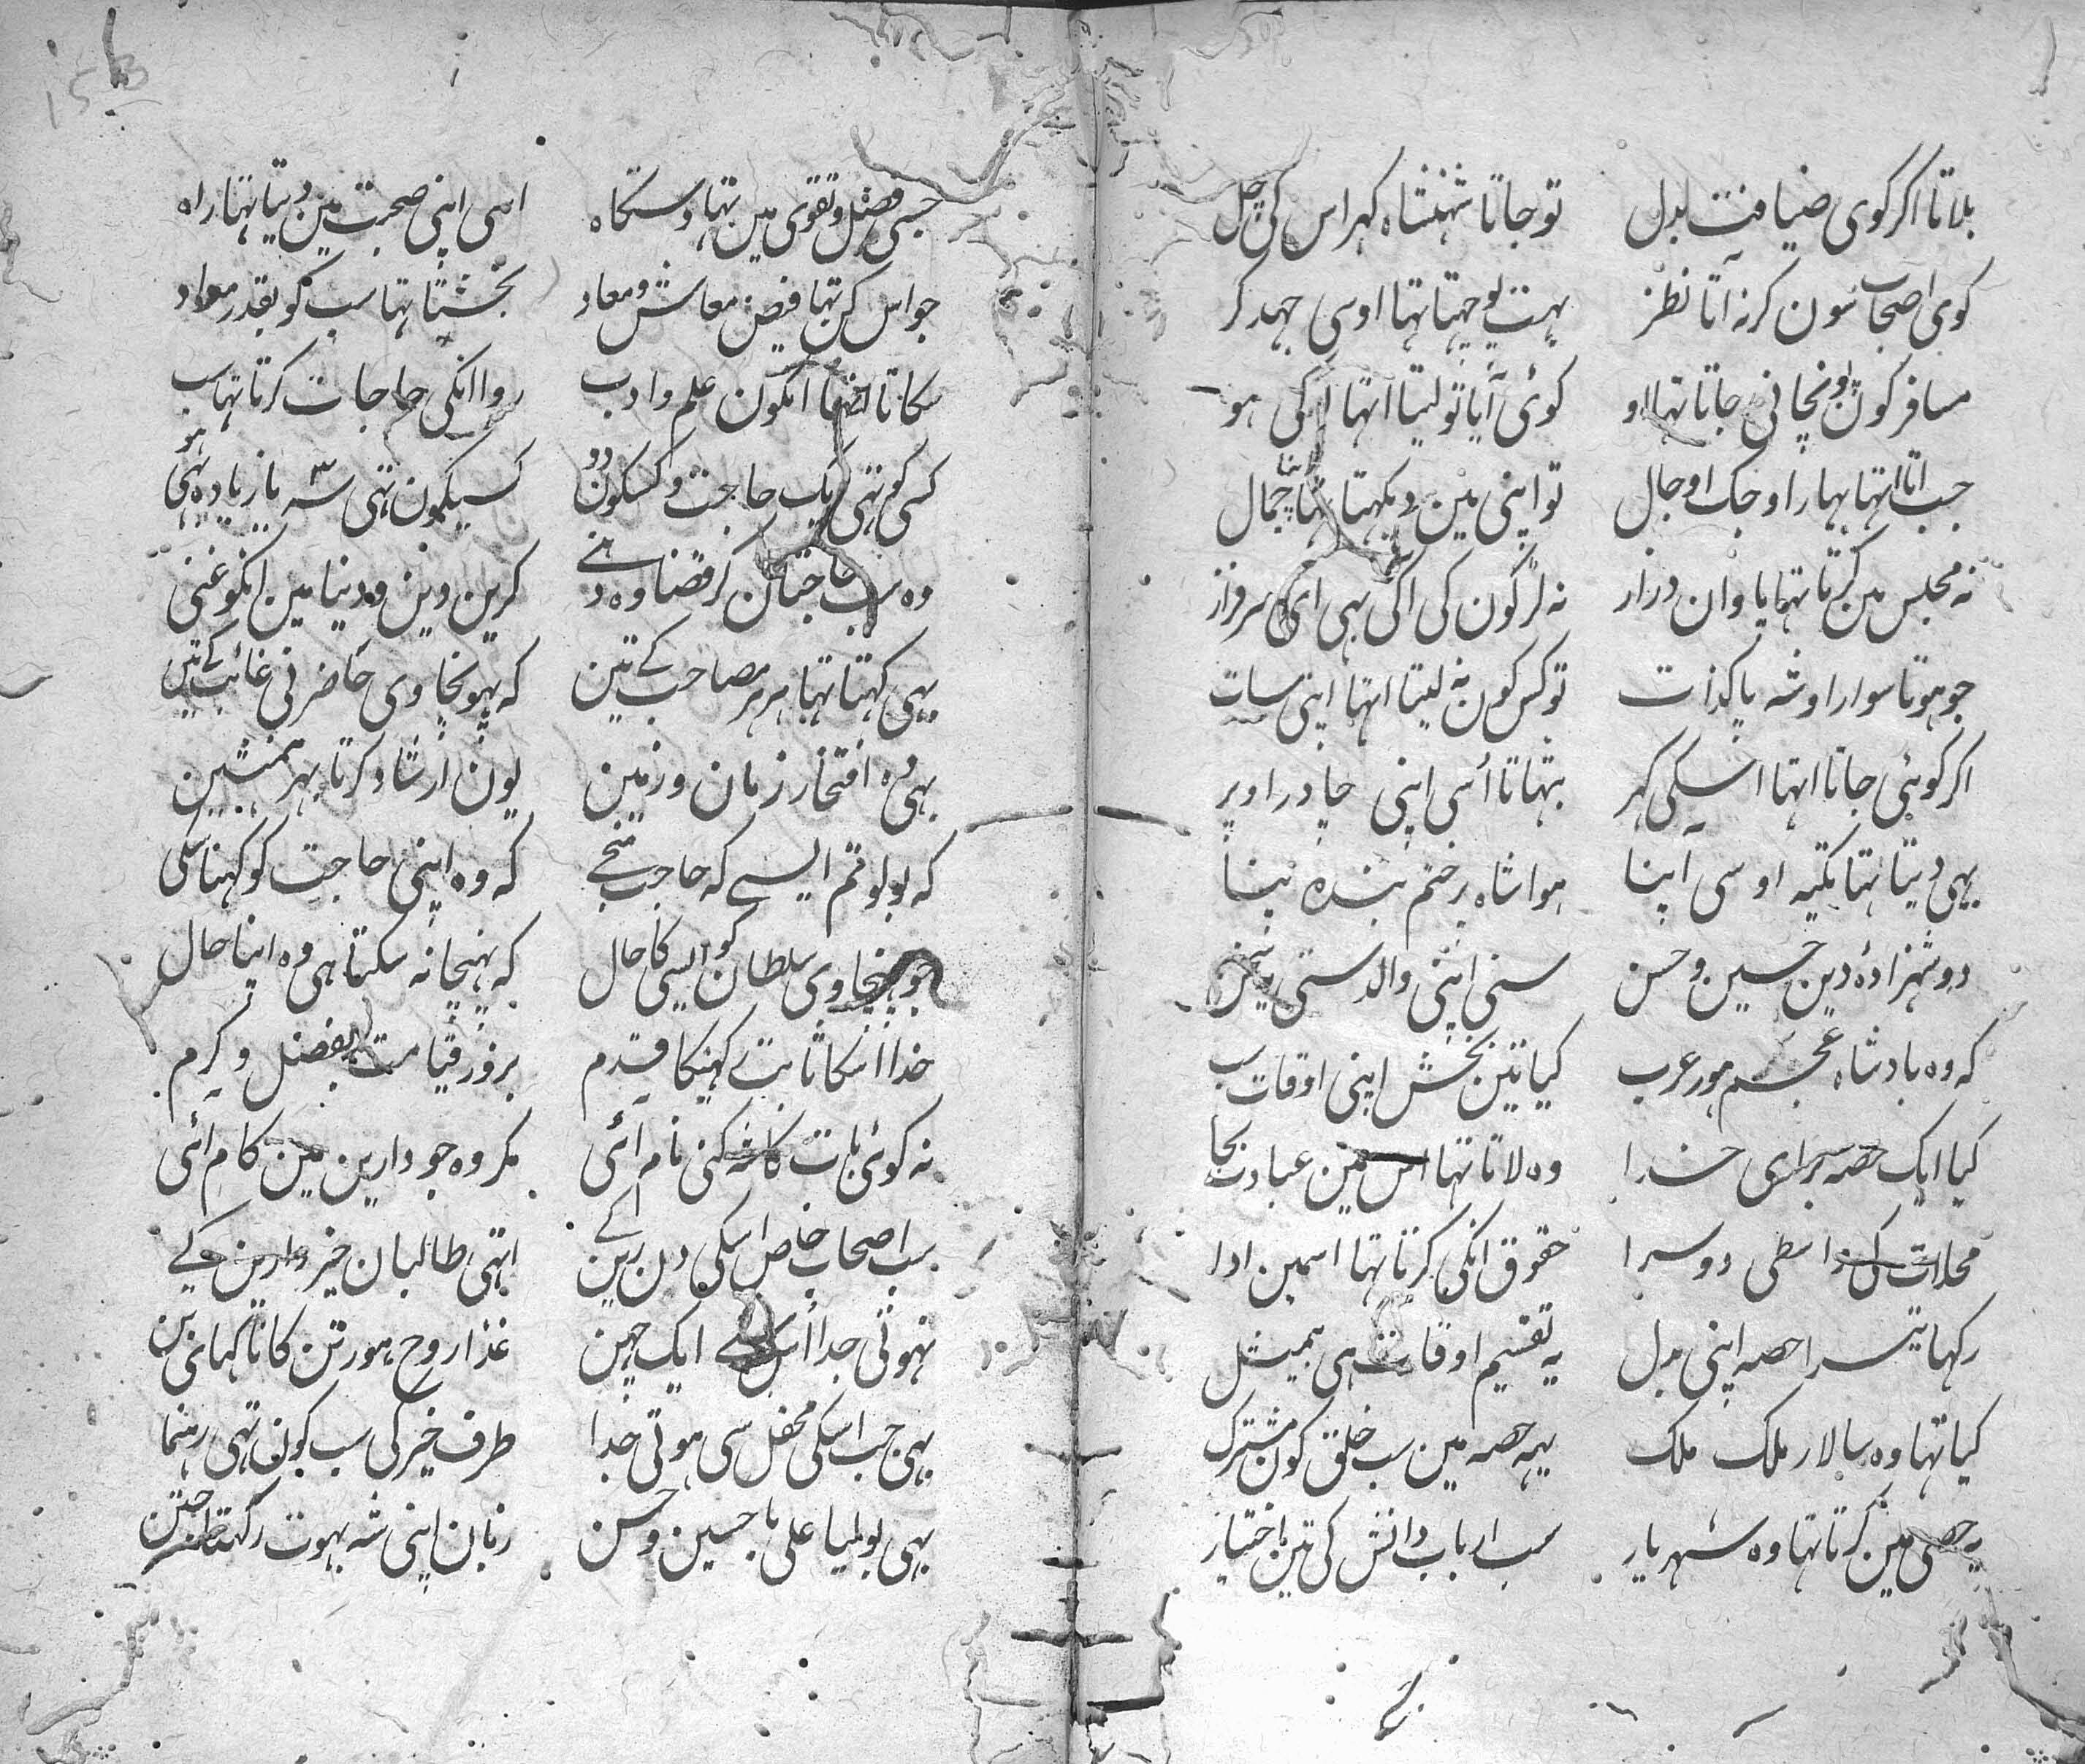 بلاتا اکر کوی ضیافت بدل
تو جاتا شہنشاہ کہر اس کی چل
کوی اصحاب سون کر نہ آتا نظر
بہت پوچہتا تہا اوسی جہد کر
مسافر کون پونچانی جاتا تہا او
کوئی آیا تو لیتا اتہا اکی ہو
جب اتا اتہا بہار او جک اوجال
تو اپنی مین دیکہتا تہا جمال
نہ مجلس مین کرتا تہا پاوان دراز
نہ لوکون کی اکی بہی ای سرفراز
جو ہوتا سوار او شہ پاکذات
تو کس کون نہ لیتا اتہا اپنی سات
اکر کوئی جاتا اتہا اسکی کہر
بتہاتا اُسی اپنی چادر اوپر
بہی دیتا تہا تکیہ اوسی اپنا
ہوا شاہ پر ختم بندہ
دو شہزادۂ دین حسین و حسن
سنی اپنی والد ستی
کہ وہ بادشاہ عجم ہور عرب
کیا تین بخش اپنی اوقات سب
کیا ایک حصہ برای خدا
وہ لاتا تہا اس مین عبادت بجا
محلات کی واسطی دوسرا
حقوق انکی کرتا تہا اسمین ادا
رکہا تیسرا حصہ اپنی بدل
یہ تقسیم اوقات ہی بیمثل
کیا تہا وہ سالار ملک ملک
یہہ حصہ مین سب خلق کون مشترک
یہ حصی مین کرتا تہا وہ شہریار
سب ارباب دانش کی تین اختیار
جسی فضل و تقوی مین تہا دستکاہ
اسی اپنی صحبت مین دیتا تہا راہ
جو اس کن تہا فیض معاش و معاد
بخشتا تہا سب کو بقدر مواد
سکاتا اتہا انکون علم و ادب
روا انکی حاجات کرتا تہا سب
کسی کو تہی یک حاجت و کسکون دو
کسیکون تہی سہ یا زیادہ بہی ہو
وہ سب حاجتان کر قضا وہ
کرین دین و دنیا مین انکو غنی
بہی کہتا تہا ہر ہر مصاحب کے تین
کہ پہونچاوی حاضر نی غائب کے تین
بہی وہ افتخار زمان و زمین
یون ارشاد کرتا بہر ہمنشین
کہ بولو تم ایسے کہ حاجت مجے
کہ وہ اپنی حاجت کو کہنا سکی
جو پنچاوی سلطان کو ایسی کا حال
کہ پہنچا نہ سکتا ہی وہ اپنا حال
خدا اسکا ثابت رکہنکا قدم
بروز قیامت بفضل و کرم
نہ کوئی بات کاشہ کنی نام آئی
مکر وہ جو دارین مین کام آئی
سب اصحاب خاص اسکی دل کے
اتہی طالبان خیر دارین کے
نہوتی جدا اس سے ایک چہن
غذا روح ہور تن کا تا کہای بن
بہی جب اسکی محفل سی ہوتی جدا
طرف خیر کی سب کون تہی رہنما
بہی بولیا علی با حسین و حسن
زبان اپنی شہ بہوت رکہتا